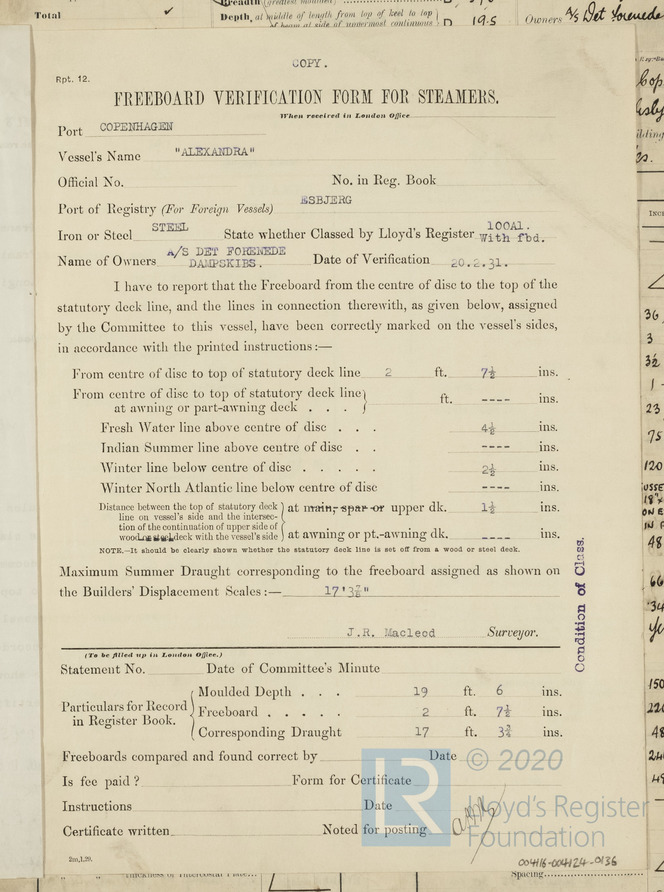 Total
Breadth (greatest moulded)
Depth, at middle of length from top of keel to top of beam at side of uppermost continuous D 19.5
Owners A/s Det Forenede
COPY.
Rpt. 12.
FREEBOARD VERIFICATION FORM FOR STEAMERS.
When received in London Office
Port COPENHAGEN
Vessel's Name "ALEXANDRA"
Official No. No. in Reg. Book
Port of Registry (For Foreign Vessels) ESBJERG
Iron or Steel STEEL State whether Classed by Lloyd's Register 100A1. With fbd.
Name of Owners A/S DET FORENEDE DAMPSKIBS. Date of Verification 20.2.31.
I have to report that the Freeboard from the centre of disc to the top of the
statutory deck line, and the lines in connection therewith, as given below, assigned
by the Committee to this vessel, have been correctly marked on the vessel's sides,
in accordance with the printed instructions:—
From centre of disc to top of statutory deck line 2 ft. 7½ ins.
From centre of disc to top of statutory deck line
at awning or part-awning deck . . . ft. ---- ins.
Fresh Water line above centre of disc . . . 4½ ins.
Indian Summer line above centre of disc . . ---- ins.
Winter line below centre of disc . . . . . 2½ ins.
Winter North Atlantic line below centre of disc ---- ins.
Distance between the top of statutory deck
line on vessel's side and the intersec-
tion of the continuation of upper side of
wood or steel deck with the vessel's side
at main, spar or upper dk. 1½ ins.
at awning or pt.-awning dk. ---- ins.
NOTE.—It should be clearly shown whether the statutory deck line is set off from a wood or steel deck.
Maximum Summer Draught corresponding to the freeboard assigned as shown on
the Builders' Displacement Scales:— 17'3⅞"
J.R. Macleod Surveyor.
Condition of Class.
(To be filled up in London Office.)
Statement No. Date of Committee's Minute
Particulars for Record
in Register Book.
Moulded Depth . . . 19 ft. 6 ins.
Freeboard . . . . . 2 ft. 7½ ins.
Corresponding Draught 17 ft. 3¾ ins.
Freeboards compared and found correct by Date
Is fee paid? Form for Certificate
Instructions Date
Certificate written Noted for posting
2m,1.29.
LR © 2020
Lloyd's Register
Foundation
004116-004124-0136
Spacing
36
3
3½
1
23
75
120
18"
48
66
34
150
220
48